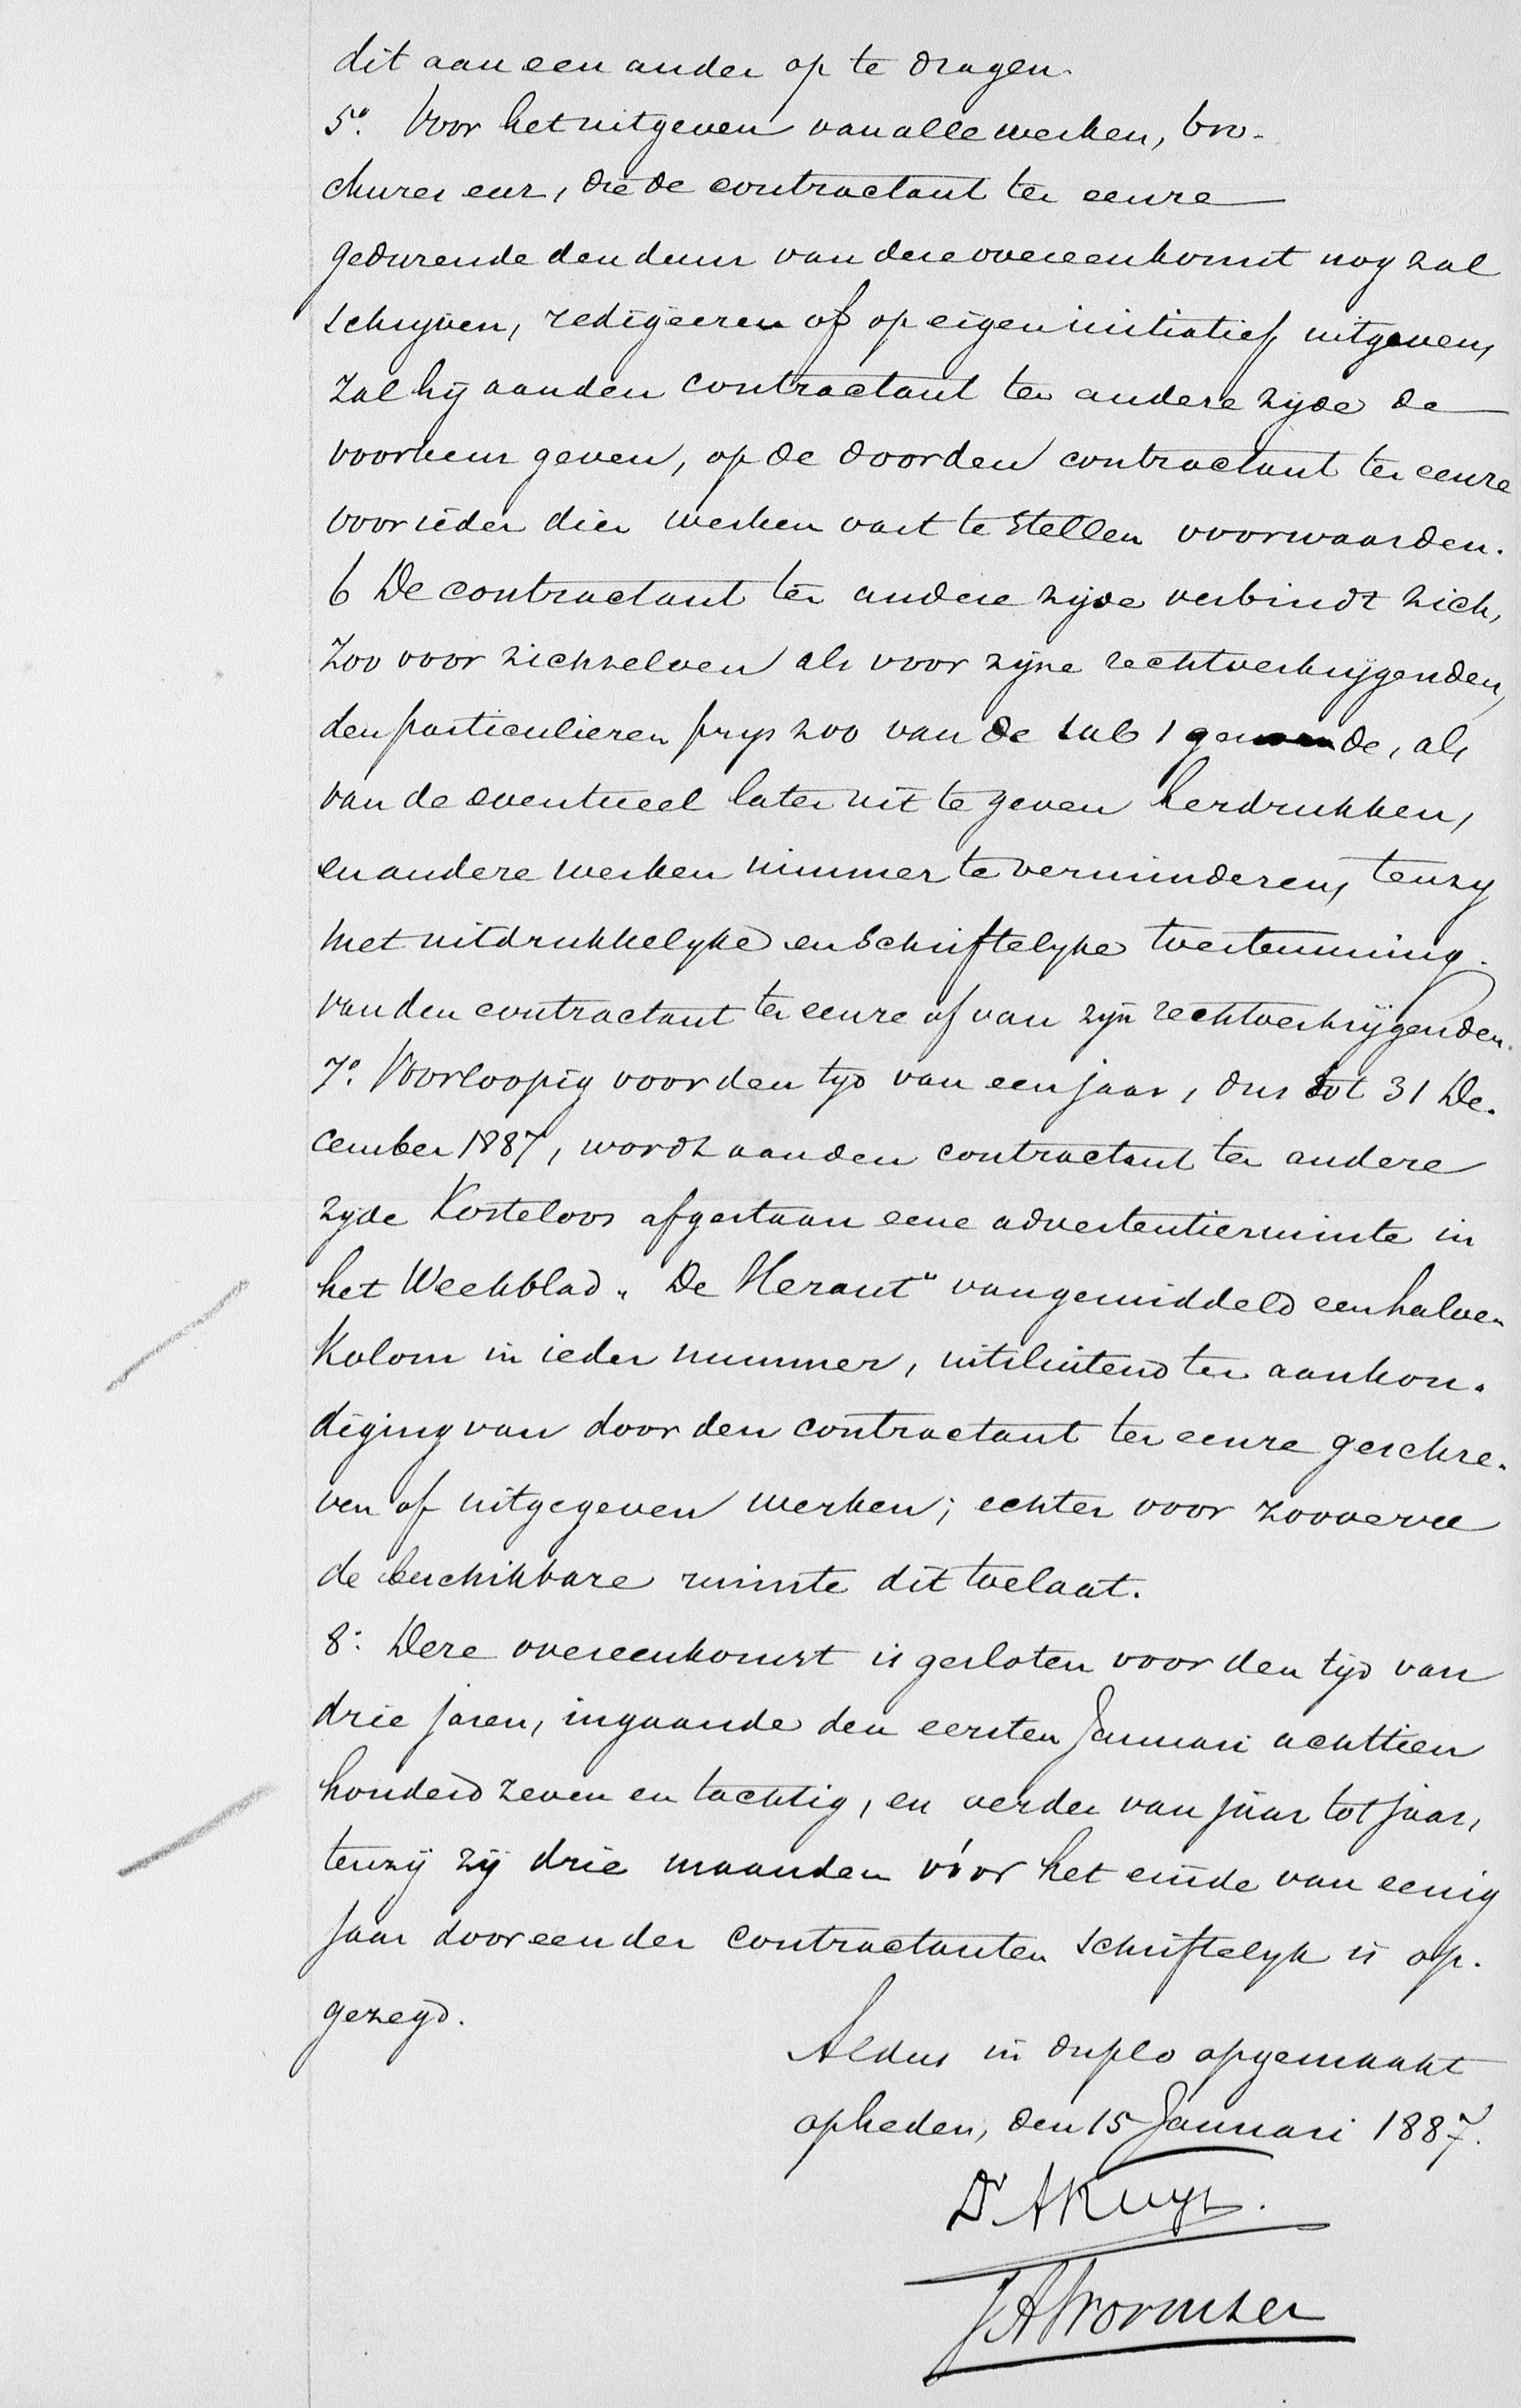 dit aan een ander op te dragen.
5º. Voor het uitgeven van alle werken, bro-
chures enz, die de contractant ter eenre
gedurende den duur van deze overeenkomst nog zal
schrijven, redigeeren of op eigen initiatief uitgeven,
zal hij aan den contractant ter andere zijde de
voorkeur geven, op de door den contractant ter eenre
voor ieder dier werken vast te stellen voorwaarden.
6 De contractant ter andere zijde verbindt zich,
zoo voor zichzelven als voor zijne rechtverkrijgenden,
den particulieren prijs zoo van de sub 1 genoemde, als
van de eventueel later uit te geven herdrukken,
en andere werken nimmer te verminderen, tenzij
met uitdrukkelijke en schriftelijke toestemming.
van den contractant ter eenre of van zijn rechtverkrijgenden.
7º. Voorloopig voor den tijd van een jaar, dus tot 31 De-
cember 1887, wordt aan den contractant ter andere
zijde kosteloos afgestaan eene advertentieruimte in
het Weekblad „De Heraut" van gemiddeld een halven
kolom in ieder nummer, uitsluitend ter aankon-
diging van door den contractant ter eenre geschre-
ven of uitgegeven werken; echter voor zooverre
de beschikbare ruimte dit toelaat.
8: Deze overeenkomst is gesloten voor den tijd van
drie jaren, ingaande den eersten Januari achttien
honderd zeven en tachtig, en verder van jaar tot jaar,
tenzij zij drie maanden vóór het einde van eenig
jaar door een der contractanten schriftelijk is op-
gezegd.
Aldus in duplo opgemaakt
op heden, den 15 Januari 1887.
Dr AKuyper.
JAWormser